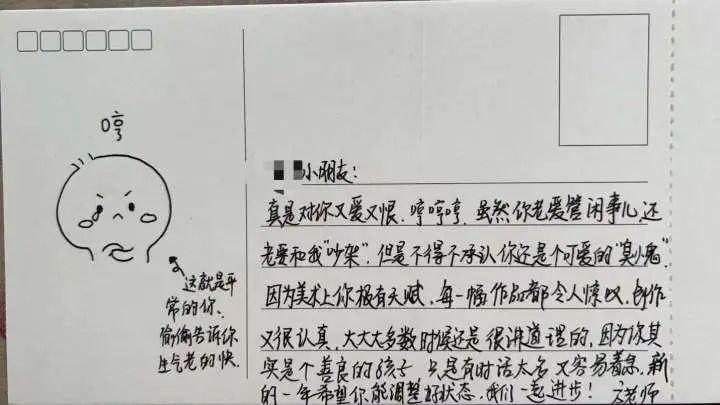 哼
这就是平
常的你、
偷偷告诉你
生气老的快.
小朋友：
真是对你又爱又恨.哼哼哼.虽然你老爱管闲事儿,还
老要和我“吵架”.但是不得不承认你还是个可爱的“臭小鬼”
因为美术上你极有天赋,每一幅作品都令人惊叹,创作
又很认真,大大大多数时候还是很讲道理的,因为你其
实是个善良的孩子 只是有时话太多 又容易着急.新
的一年希望你能调整好状态.我们一起进步! 方老师